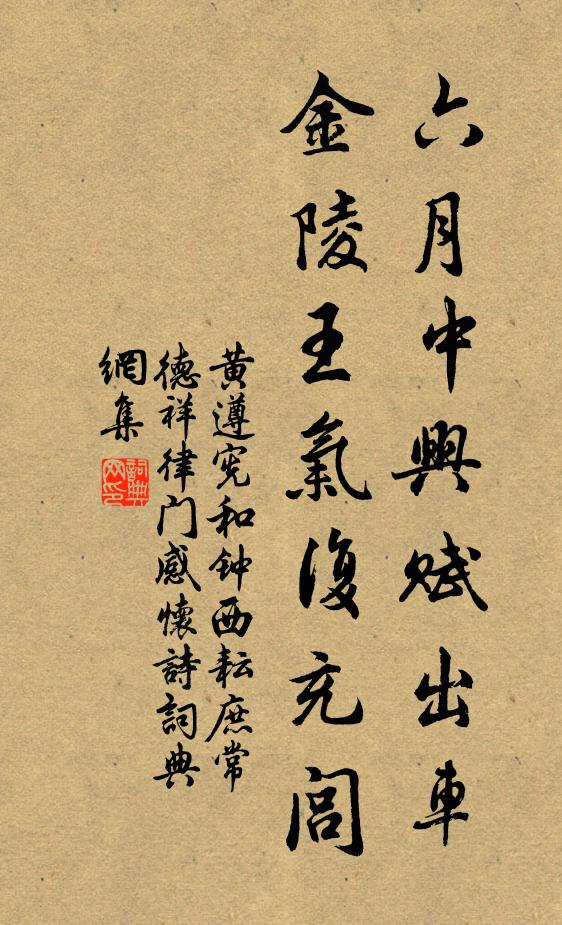 六月中興賦出車
金陵王氣復充閭
黃遵宪和钟西耘庶常
德祥律门感懷詩詞典
網集
詞典
网印